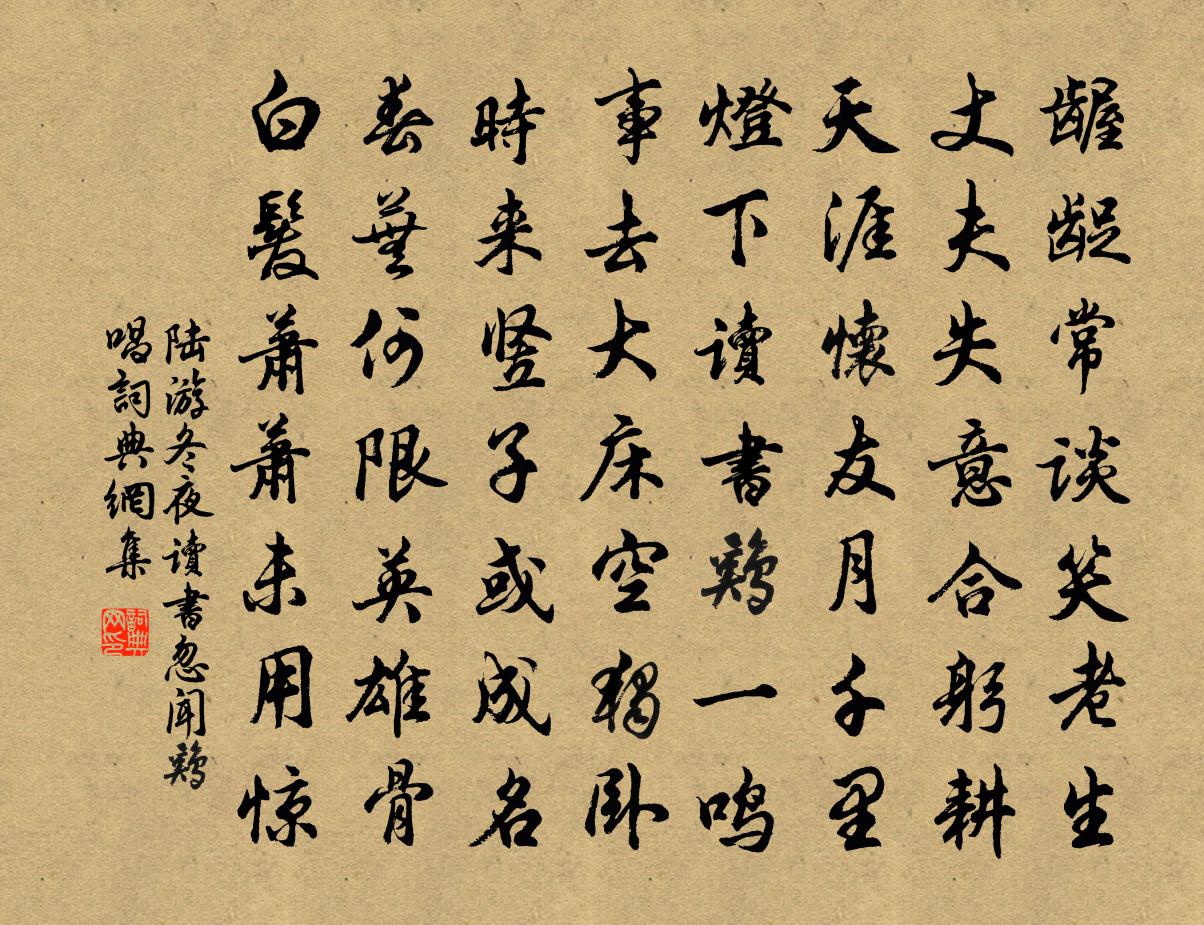 齷齪常談笑老生
丈夫失意合躬耕
天涯懷友月千里
燈下讀書鷄一鳴
事去大床空獨卧
時来竖子或成名
春蕪何限英雄骨
白髮蕭蕭未用惊
陆游冬夜讀書忽聞鷄
唱詞典網集
詞典网印